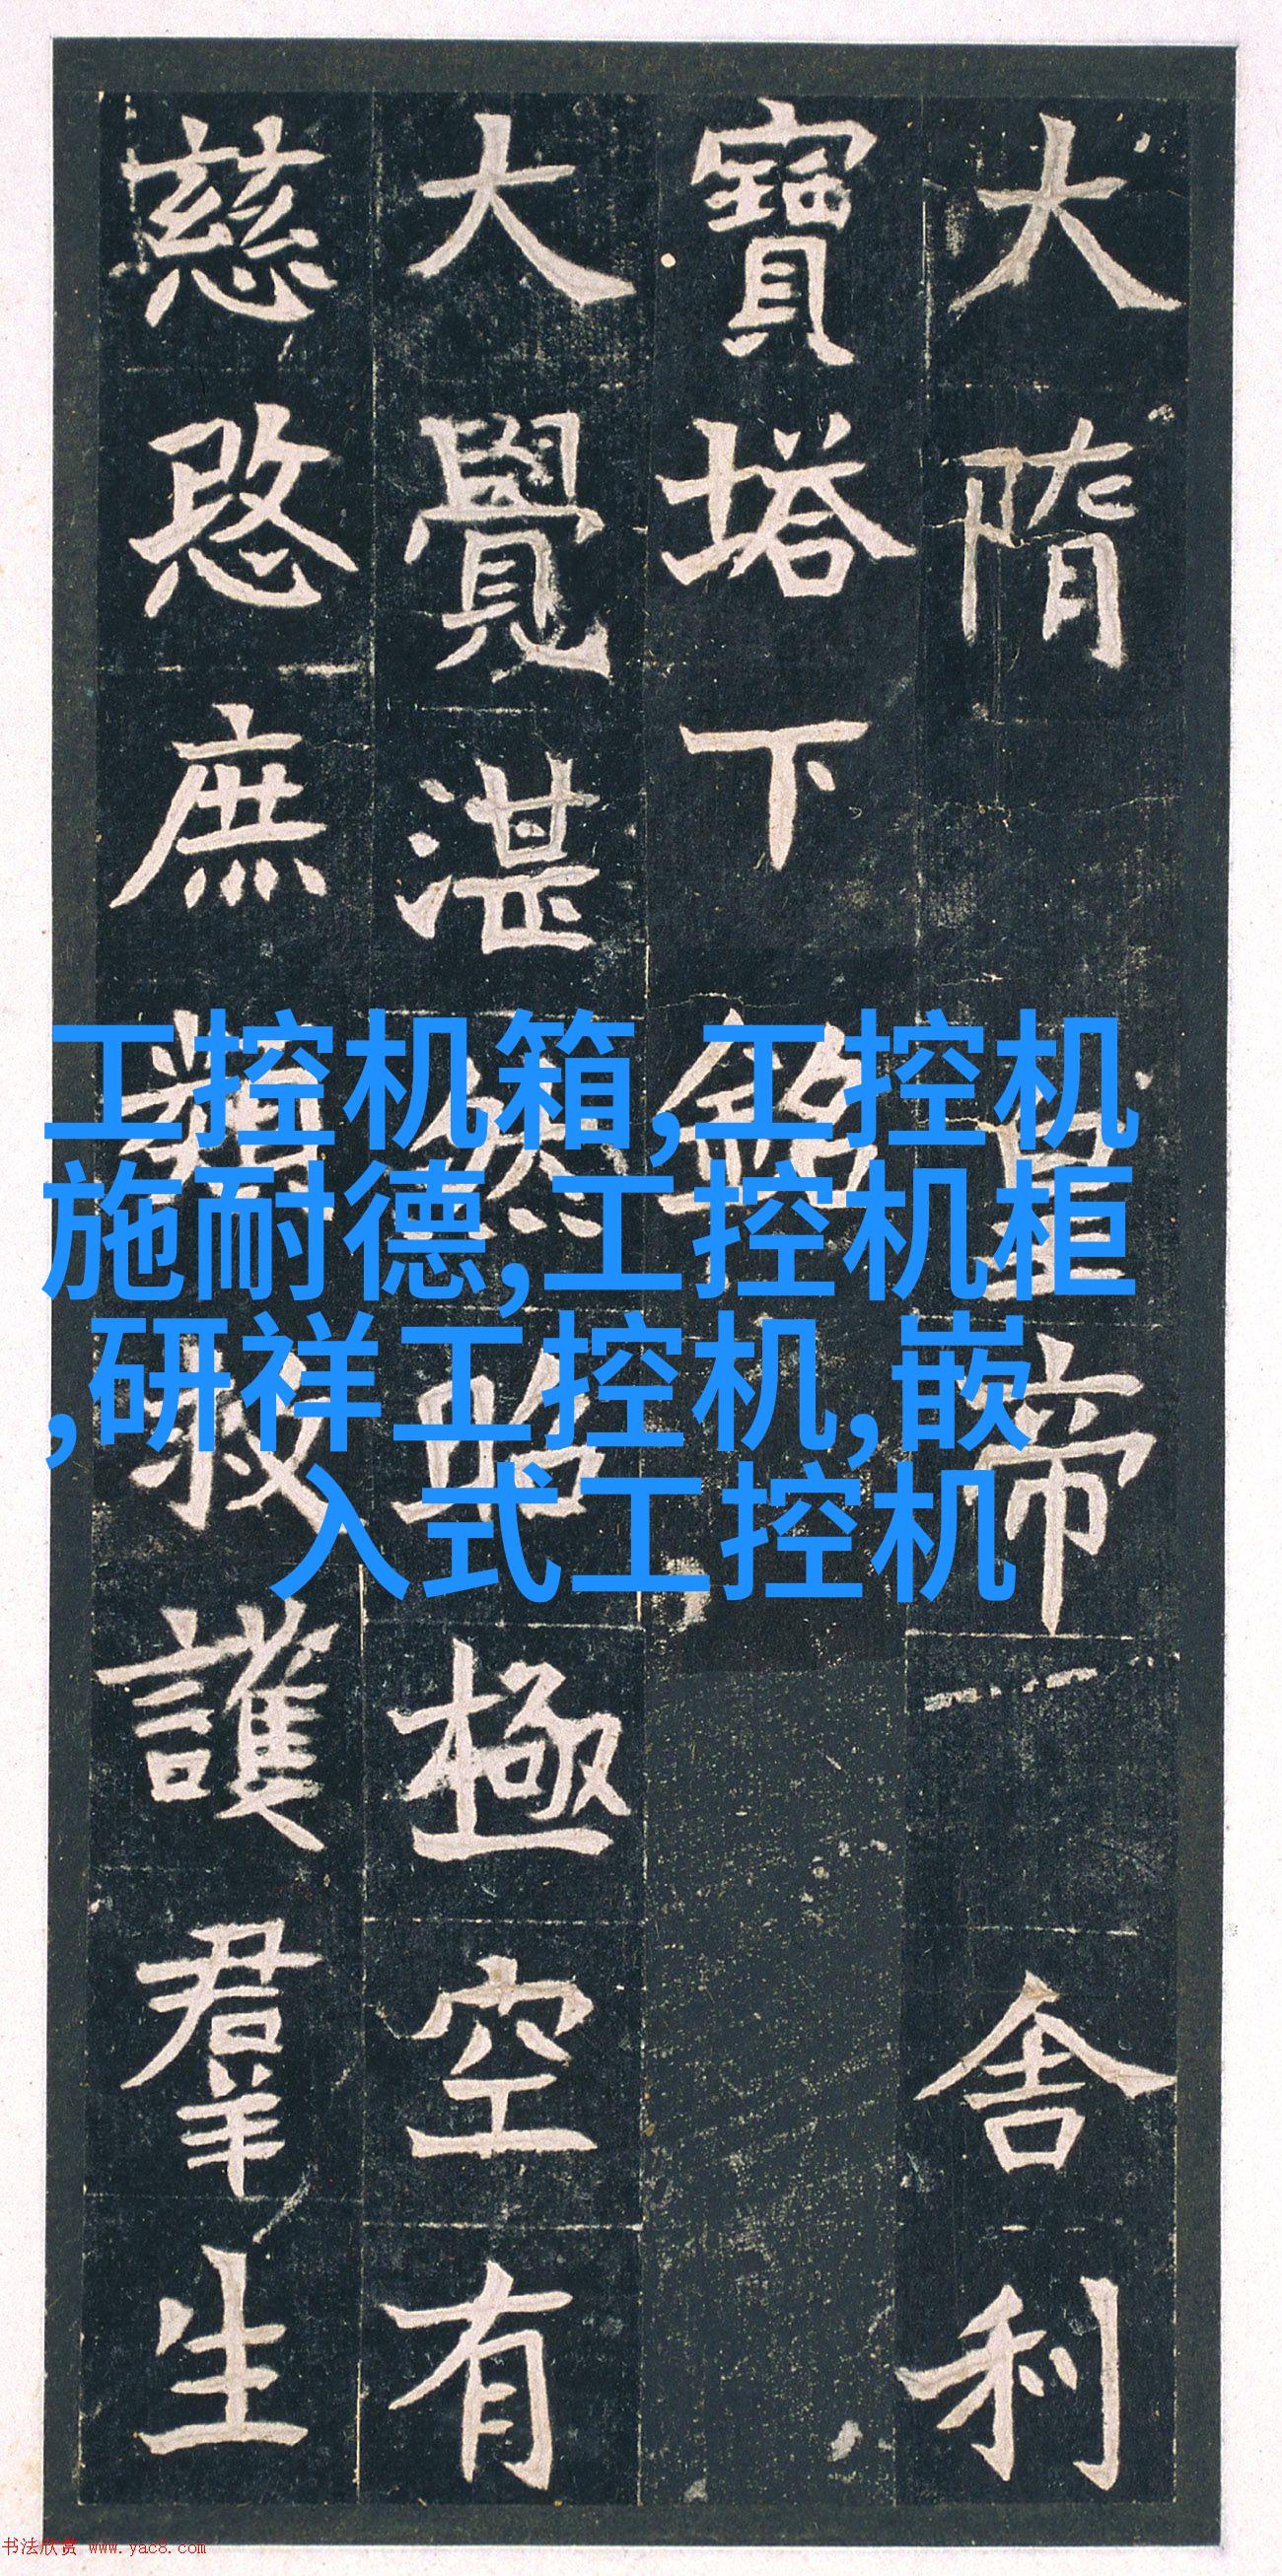 大隋皇帝舍利
寶塔下銘
大覺湛然昭極空有
慈愍庶類救護羣生
工控机箱,工控机
施耐德,工控机柜
,研祥工控机,嵌
入式工控机
书法欣赏 www.yac8.com